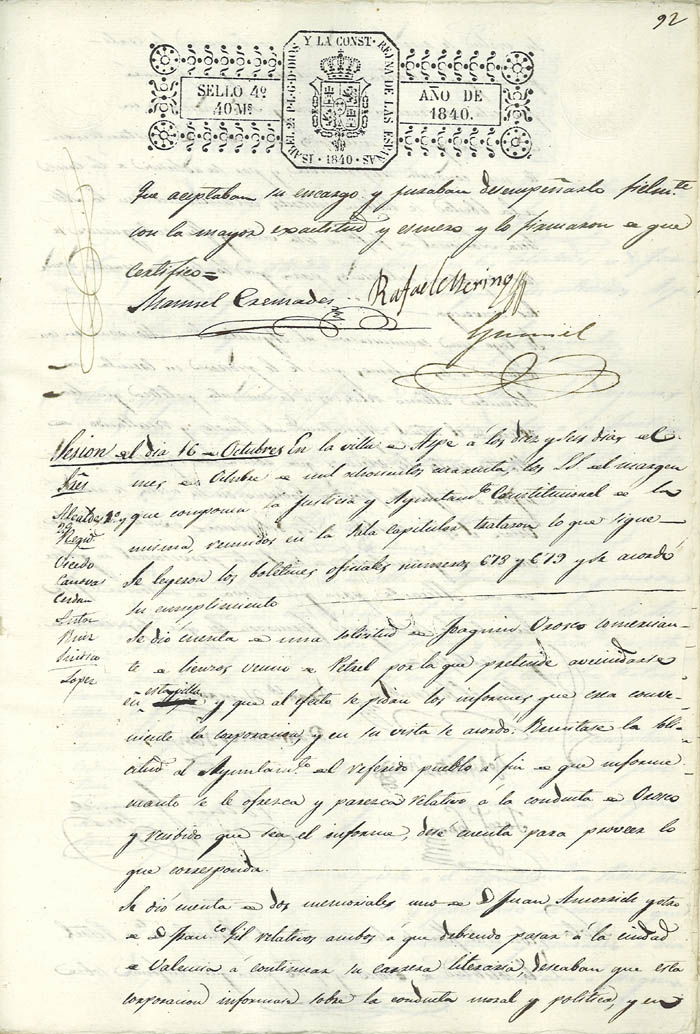 92
ISABEL 2ª P.L.G.D.DIOS Y LA CONST. REINA DE LAS ESPAÑAS
1840
SELLO 4º
40 Ms
AÑO DE
1840.
Que aceptaban su encargo y juraban desempeñarlo fielmte
con la mayor exactitud y esmero y lo firmaron de que
certifico=
Manuel Cremades
Rafael Merino
Gumiel
Sesion del dia 16 de Octubre
Sres
Alcaldes 1º y
2º
Regid
Oredo
Canovas
Cerdan
Pastor
Ruiz
Lopez
En la villa de Aspe á los diez y seis dias del
mes de Octubre de mil ochocientos cuarenta, los SS del margen
que componen la Justicia y Ayuntamto Constitucional de la
misma, reunidos en la Sala Capitular trataron lo que sigue
Se leyeron los boletines oficiales numeros 678 y 679 y se acordó
su cumplimiento
Se dió cuenta de una solicitud de Joaquin Orosco comercian-
te de lienzos vecino de Petrel por la que pretende avecindarse
en esta villa y que al efecto se pidan los informes que crea conve-
niente la corporacion, y en su vista se acordó: Remitase la soli-
citud al Ayuntamto del referido pueblo a fin de que informe
cuanto se le ofresca y paresca relativo á la conducta de Orosco
y recibido que sea el informe, dese cuenta para proveer lo
que corresponda.
Se dió cuenta de dos memoriales uno de D Juan y otro
de D Franco Gil relativos ambos á que debiendo pasar á la ciudad
de Valencia á continuar su carrera literaria, deseaban que esta
corporacion informase sobre la conducta moral y politica, y en